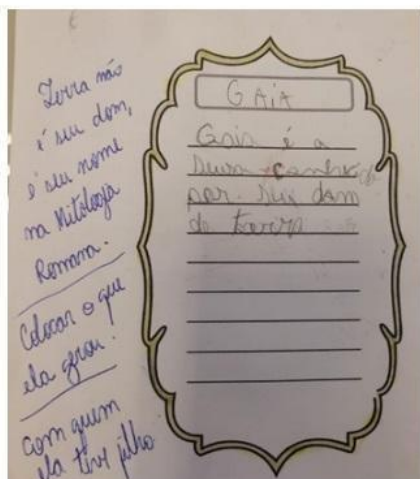 Terra não
é seu dom,
é seu nome
na Mitologia
Romana.
Colocar o que
ela gerou.
com quem
ela teve filho
GAiA
Gaia é a
por seu dom
de